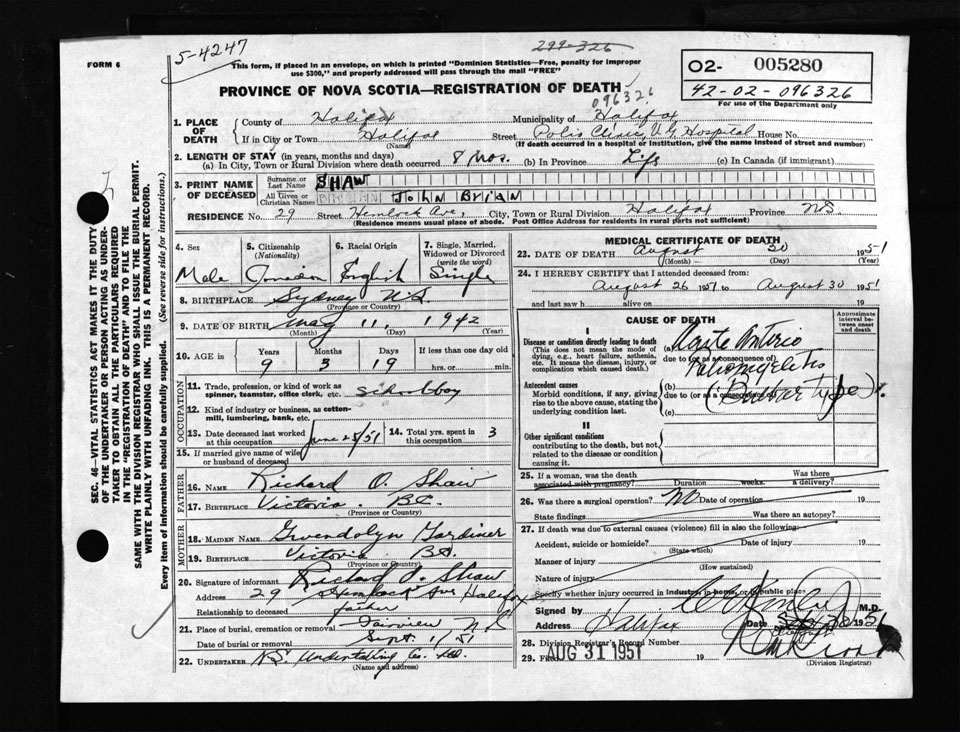 5-4247
299-326
FORM 6
This form, if placed in an envelope, on which is printed "Dominion Statistics—Free, penalty for improper
use $300," and properly addressed will pass through the mail "FREE"
O2- 005280
42-02-096326
For use of the Department only
PROVINCE OF NOVA SCOTIA—REGISTRATION OF DEATH
096326
1. PLACE OF DEATH
County of Halifax Municipality of Halifax
If in City or Town Halifax Street Polio Clinic V.G. Hospital House No.
(Name) (If death occurred in a hospital or institution, give the name instead of street and number)
2. LENGTH OF STAY (in years, months and days)
(a) In City, Town or Rural Division where death occurred 8 Mos. (b) In Province Life (c) In Canada (if immigrant)
3. PRINT NAME OF DECEASED
Surname or Last Name SHAW
All Given or Christian Names John Brian
RESIDENCE No. 29 Street Hemlock Ave, City, Town or Rural Division Halifax Province N.S.
(Residence means usual place of abode. Post Office Address for residents in rural parts not sufficient)
4. Sex 5. Citizenship (Nationality) 6. Racial Origin 7. Single, Married, Widowed or Divorced (write the word)
Male Canadian English Single
8. BIRTHPLACE Sydney N.S.
(Province or Country)
9. DATE OF BIRTH May 11, 1942
(Month) (Day) (Year)
10. AGE in Years Months Days If less than one day old
9 3 19 hrs. or min.
OCCUPATION
11. Trade, profession, or kind of work as spinner, teamster, office clerk, etc. Schoolboy
12. Kind of industry or business, as cotton-mill, lumbering, bank, etc.
13. Date deceased last worked at this occupation June 25/51 14. Total yrs. spent in this occupation 3
15. If married give name of wife or husband of deceased
FATHER
16. NAME Richard O. Shaw
17. BIRTHPLACE Victoria. B.C.
(Province or Country)
MOTHER
18. MAIDEN NAME Gwendolyn Gardiner
19. BIRTHPLACE Victoria B.C.
(Province or Country)
20. Signature of informant Richard O. Shaw
Address 29 Hemlock Ave Halifax
Relationship to deceased father
21. Place of burial, cremation or removal Fairview N.S.
Date of burial or removal Sept. 1/51
22. UNDERTAKER N.S. Undertaking Co. Ltd.
(Name and address)
MEDICAL CERTIFICATE OF DEATH
23. DATE OF DEATH August 30 1951
(Month) (Day) (Year)
24. I HEREBY CERTIFY that I attended deceased from
August 26 1951 to August 30 1951
and last saw h alive on 19
CAUSE OF DEATH
Approximate interval between onset and death
I
Disease or condition directly leading to death
(This does not mean the mode of dying, e.g., heart failure, asthenia, etc. It means the disease, injury, or complication which caused death.)
(a) Acute Anterio
due to (or as a consequence of)
Poliomyelitis
Antecedent causes
Morbid conditions, if any, giving rise to the above cause, stating the underlying condition last.
(b)
due to (or as a consequence of)
(Bulbar type).
(c)
II
Other significant conditions
contributing to the death, but not related to the disease or condition causing it.
25. If a woman, was the death associated with pregnancy? Duration weeks. Was there a delivery?
26. Was there a surgical operation? No Date of operation 19
State findings Was there an autopsy?
27. If death was due to external causes (violence) fill in also the following:
Accident, suicide or homicide? Date of injury 19
(State which)
Manner of injury
(How sustained)
Nature of injury
Specify whether injury occurred in industry, in home, or in public place
Signed by M.D.
Address Halifax
28. Division Registrar's Record Number
29. Filed AUG 31 1951 19
(Division Registrar)
SEC. 46—VITAL STATISTICS ACT MAKES IT THE DUTY
OF THE UNDERTAKER OR PERSON ACTING AS UNDER-
TAKER TO OBTAIN ALL THE PARTICULARS REQUIRED
IN THE "REGISTRATION OF DEATH" AND TO FILE THE
SAME WITH THE DIVISION REGISTRAR WHO SHALL ISSUE THE BURIAL PERMIT.
WRITE PLAINLY WITH UNFADING INK. THIS IS A PERMANENT RECORD.
Every item of information should be carefully supplied. (See reverse side for instructions.)